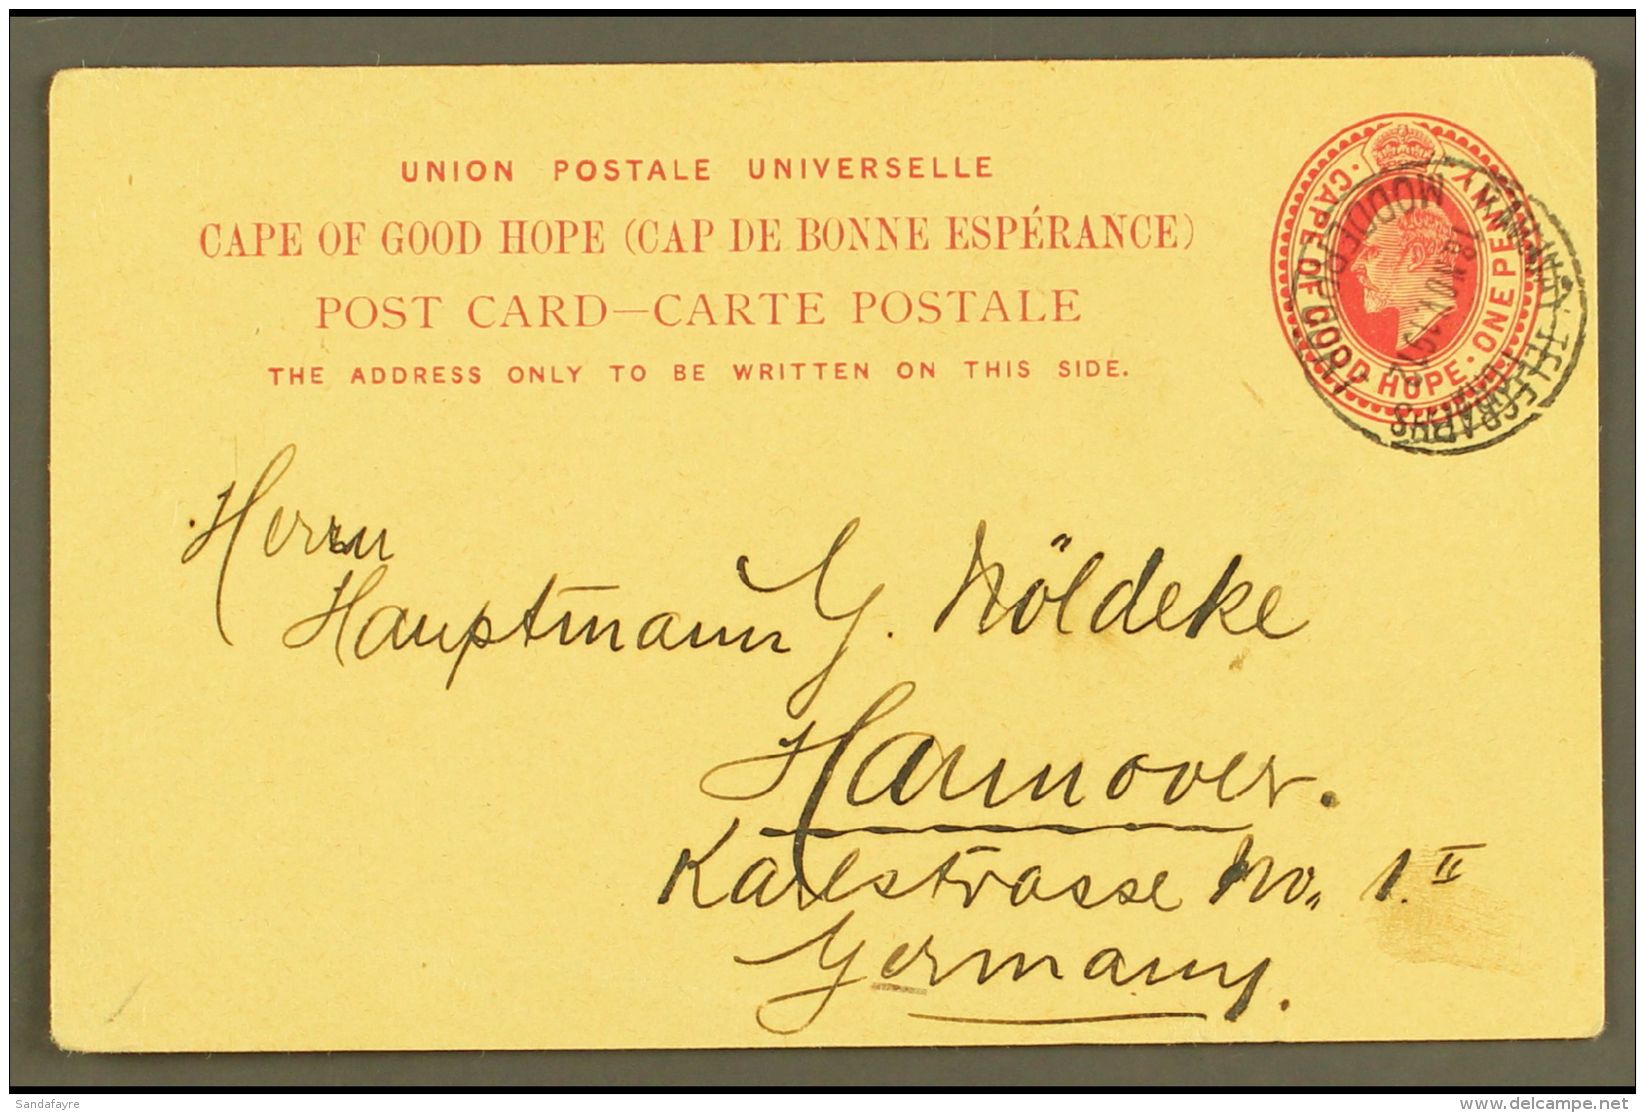 UNION POSTALE UNIVERSELLE
CAPE OF GOOD HOPE (CAP DE BONNE ESPÉRANCE)
POST CARD—CARTE POSTALE
THE ADDRESS ONLY TO BE WRITTEN ON THIS SIDE.
· CAPE OF GOOD HOPE · ONE PENNY ·
TELEGRAPHS
Herrn
Hauptmann G. Nöldeke
Hannover.
Karlstrasse No. 1. II
Germany.
Sandafayre
www.delcampe.net